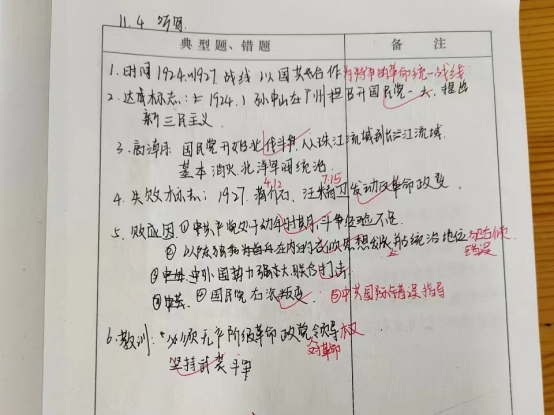 11.4
典型题、错题
备 注
1. 时间 1924~1927 战线 以国共合作为特征的革命统一战线
2. 达成标志: 1924.1 孙中山在广州担召开国民党一大,提出
新三民主义
3. 高潮: 国民党开始北伐斗争,从珠江流域到长江流域,
基本消灭北洋军阀统治.
4.12 7.15
4. 失败标志: 1927. 蒋介石、汪精卫发动反革命政变
5. 败因: ① 中共产党处于幼年时期,斗争经验不足
② 以陈独秀为首 在内的 思想发展,并占统治地位
错误
③ 中外国势力强大联合打击
④ 国民党右派叛变 ⑤ 中共国际错误指导
6. 教训: 必须无产阶级革命政党领导权
对革命
坚持武装斗争